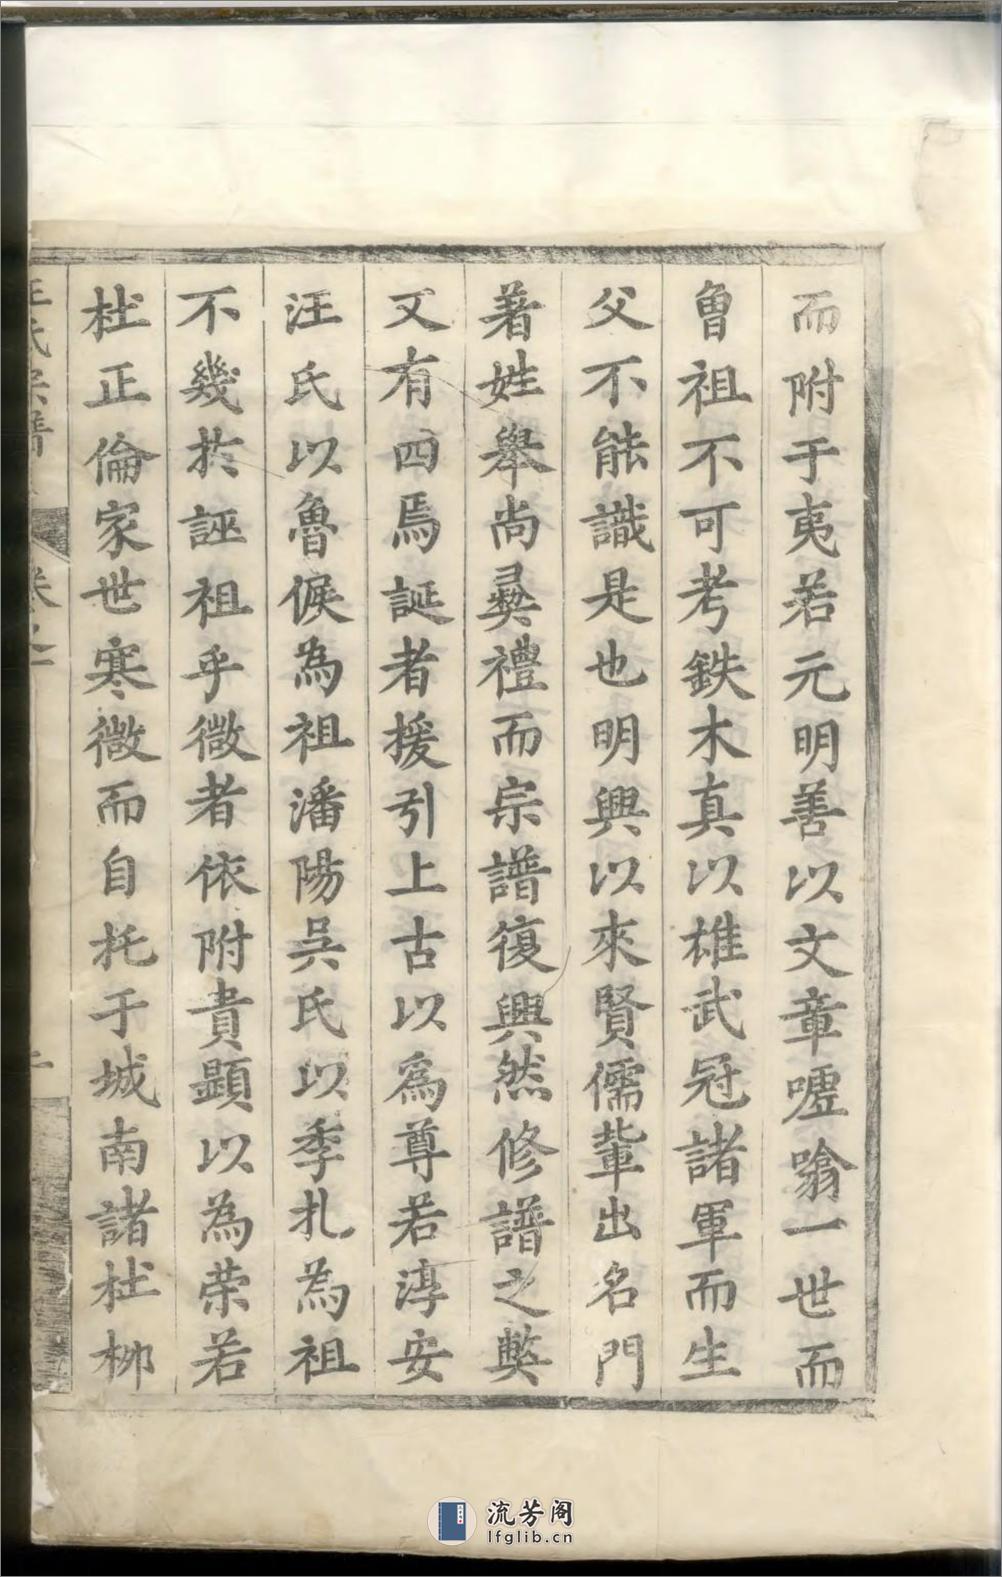 而附于夷若元明善以文章嘘翕一世而
曾祖不可考鉄木真以雄武冠諸軍而生
父不能識是也明興以來賢儒輩出名門
著姓舉尚彛禮而宗譜復興然修譜之獘
又有四焉誕者援引上古以爲尊若淳安
汪氏以魯侯為祖潘陽吳氏以季札為祖
不幾於誣祖乎微者依附貴顯以為荣若
杜正倫家世寒微而自托于城南諸杜柳
王氏宗譜 卷之一
流芳阁
lfglib.cn